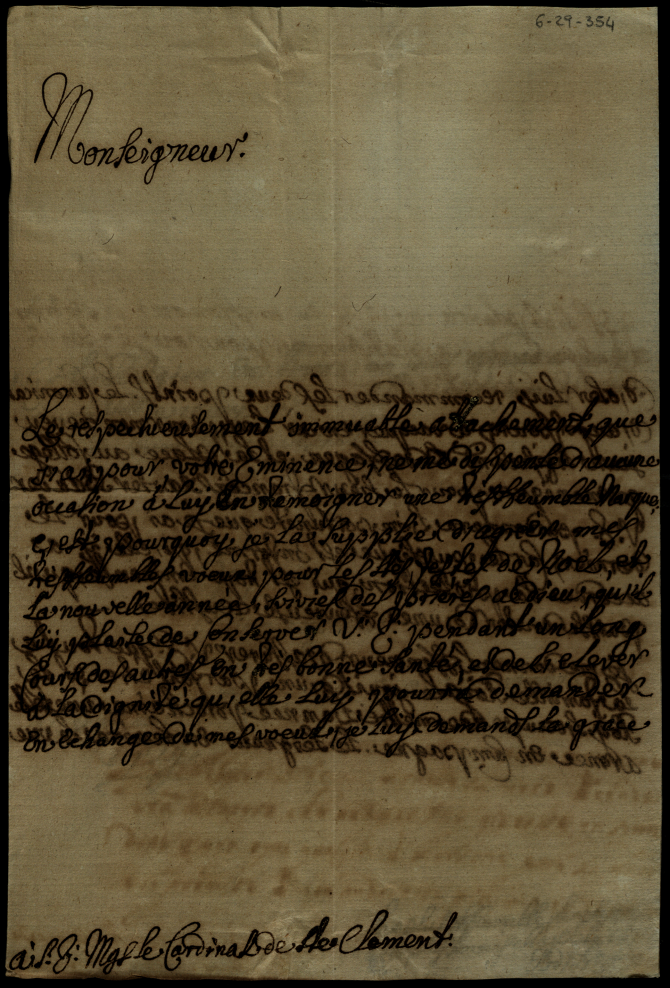 6-29-354
Monseigneur.
Le respectueusement immuable attachement, que
j'ay pour votre Eminence, ne me dispense d'aucune
occasion à Luy en temoigner une tres humble Marque,
c'est pourquoy je La supplie d'agreer mes
tres humbles voeux pour les stes festes de Noel, et
La nouvelle année, suivies des prieres a Dieu, qu'il
Luy plaise de Conserver V. E. pendant un long
Cours des autres en tres bonne santé, et de L'elever
à la Dignité qu'elle Luy pourra demander
en echange de mes voeux, je Luy demande la grace
à S. E. Mgr le Cardinal de Ste Clement.